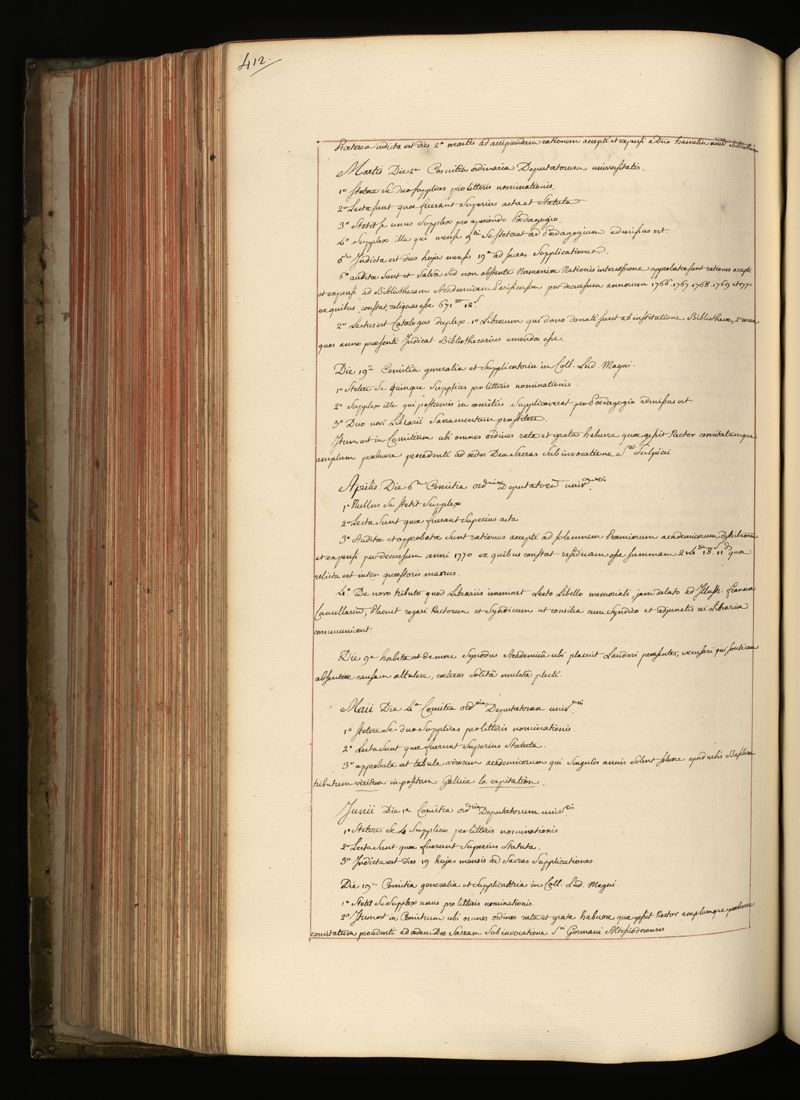 412.
Præterea indicta est dies 2a martis ad accipiendam rationem accepti et expensi a Dno hamelin
Martis Die 2a Comitia ordinaria Deputatorum universitatis.
1o Stetere se duo supplices pro litteris nominationis.
2o Lecta sunt quæ fuerant superius acta et statuta
3o Stetit se unus supplex pro regendo Pædagogio.
4o Supplex ille qui mense steterat ad Pædagogium admissus est
5o Indicta est dies hujus mensis 19a ad sacras supplicationes.
6o auditæ sunt et salvâ sed non obstante Normaniæ Nationis intercessione approbatæ sunt rationes accepti
et expensi ad Bibliothecam Academicam Parisiensem per decursum annorum 1766 1767 1768 1769 et 1770
ex quibus constat reliquas esse 671 12s
2o Lectus est Catalogus duplex. 1o Librorum qui dono donati sunt ab institutione Bibliothecæ, 2o eorum
quos anno præsenti Judicat Bibliothecarius emendos esse.
Die 19a Comitia generalia et supplicatoria in Coll. Lud. Magni.
1o Stetere se quinque supplices pro litteris nominationis.
2o Supplex ille qui postremis in comitiis supplicaverat pro Pædagogio admissus est
3o Duo novi Librarii Sacramentum præstitere.
Itum est in Comitium ubi omnes ordines rata et grata habuere quæ gessit Rector comitatumque
amplum præbuere procedenti ad ædem Deo Sacras sub invocatione Sti Sulpicii
Aprilis. Die 6a Comitia ordinia Deputatorum univtis.
1o Nullus se stetit supplex
2o Lecta sunt quæ fuerant superius acta
3o Auditæ et approbatæ sunt rationes accepti ad solemnem Præmiorum academicorum distributionem
et expensi per decursum anni 1770 ex quibus constat residuam esse summam 2 18s 11d quæ
relicta est inter quæstoris manus.
4o De novo tributo quod Librariis imminet Lecto Libello memoriali, jam delato ad Illustr. Franciæ
Cancellarium, Placuit rogari Rectorem et Syndicum ut consilia cum Syndico et adjunctis rei Librariæ
communicent.
Die 9a habita est de more Synodus Academica ubi placuit Laudari præsentes, excusari qui
absentiæ causam attulere, cæteros solitâ mulctâ plecti.
Maii Die 4a Comitia ordia Deputatorum univtis
1o Stetere se duo supplices pro litteris nominationis.
2o Lecta sunt quæ fuerunt superius statuta.
3o approbata est tabula virorum academicorum qui singulis annis solent solvere
tributum viritim impositum Gallice la capitation.
Junii Die 1a Comitia ordia Deputatorum univtis
1o Stetere se 4 supplices pro litteris nominationis
2o Lecta sunt quæ fuerunt superius statuta.
3o Indicta est dies 19 hujus mensis ad sacras supplicationes
Die 19a Comitia generalia et supplicatoria in Coll. Lud. Magni.
1o Stetit se supplex unus pro litteris nominationis.
2o Itum est in Comitium ubi omnes ordines rata et grata habuere quæ gessit Rector amplumque præbuere
comitatum procedenti ad ædem Deo Sacram sub invocatione Sti Germani Altissiodorensis